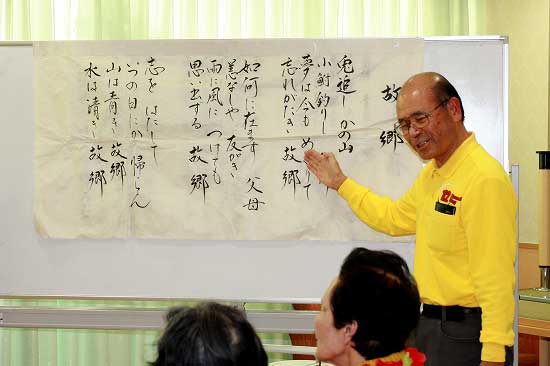 故郷
兎追し かの山
小鮒釣りし
夢は今も めぐりて
忘れがたき 故郷
如何に在ます 父母
恙なしや 友がき
雨に風に つけても
思い出する 故郷
志を はたして
いつの日にか 帰らん
山は青き 故郷
水は清き 故郷